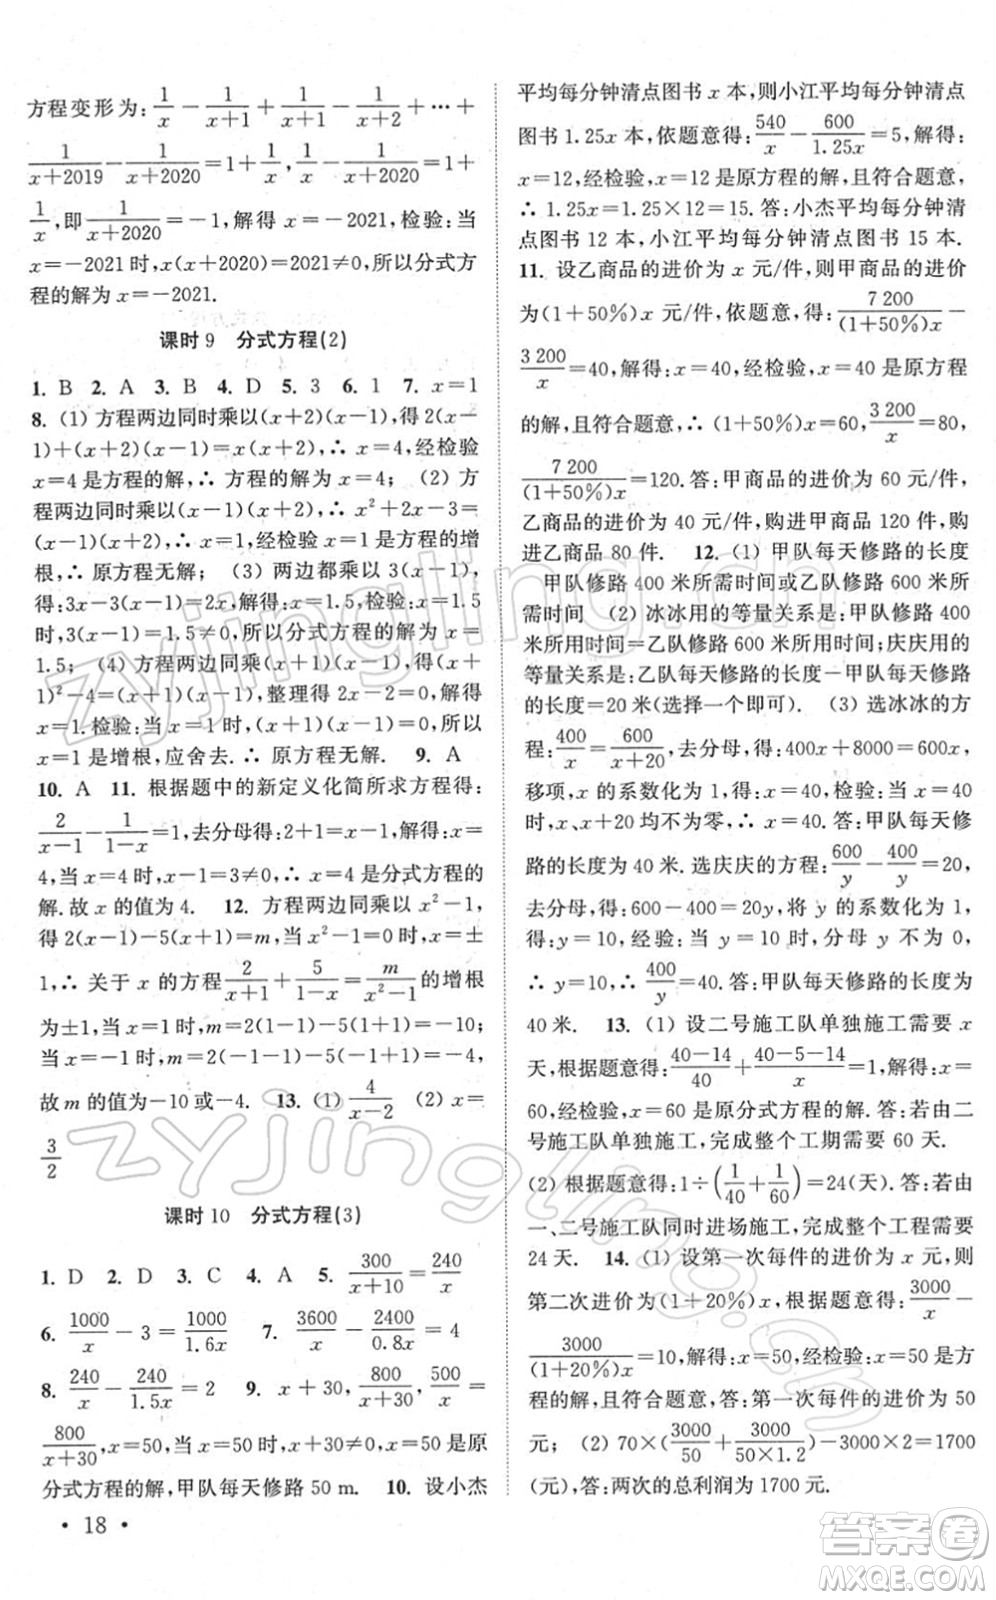 方程变形为:1/x−1/(x+1)+1/(x+1)−1/(x+2)+⋯+
1/(x+2019)−1/(x+2020)=1+1/x,1/x−1/(x+2020)=1+
1/x,即1/(x+2020)=−1,解得 x=−2021,检验:当
x=−2021 时,x(x+2020)=2021≠0,所以分式方
程的解为 x=−2021.
课时 9 分式方程(2)
1. B 2. A 3. B 4. D 5. 3 6. 1 7. x=1
8. (1) 方程两边同时乘以(x+2)(x−1),得 2(x−
1)+(x+2)(x−1)=x(x+2),∴ x=4,经检验
x=4 是方程的解,∴ 方程的解为 x=4; (2) 方
程两边同时乘以(x−1)(x+2),∴ x²+2x−3=
(x−1)(x+2),∴ x=1,经检验 x=1 是方程的增
根,∴ 原方程无解; (3) 两边都乘以 3(x−1),
得:3x−3(x−1)=2x,解得:x=1.5,检验:x=1.5
时,3(x−1)=1.5≠0,所以分式方程的解为 x=
1.5; (4) 方程两边同乘(x+1)(x−1),得(x+
1)²−4=(x+1)(x−1),整理得 2x−2=0,解得
x=1. 检验:当 x=1 时,(x+1)(x−1)=0,所以
x=1 是增根,应舍去.∴ 原方程无解. 9. A
10. A 11. 根据题中的新定义化简所求方程得:
2/(x−1)−1/(1−x)=1,去分母得:2+1=x−1,解得:x=
4,当 x=4 时,x−1=3≠0,∴ x=4 是分式方程的
解.故 x 的值为 4. 12. 方程两边同乘以 x²−1,
得 2(x−1)−5(x+1)=m,当有增根时,得 x=±
1,∴ 关于 x 的方程2/(x+1)+5/(1−x)=m/(x²−1)的增根
为±1,当 x=1 时,m=2(1−1)−5(1+1)=−10;
当 x=−1 时,m=2(−1−1)−5(−1+1)=−4,
故 m 的值为−10 或−4. 13. (1) 4/(x−2) (2) x=
3/2
课时 10 分式方程(3)
1. D 2. D 3. C 4. A 5. 300/(x+10)=240/x
6. 1000/x−3=1000/1.6x 7. 3600/x−2400/0.8x=4
8. 240/x−240/1.5x=2 9. x+30,800/(x+30),500/x=
800/(x+30),x=50,当 x=50 时,x+30≠0,x=50 是原
分式方程的解,甲队每天修路 50 m. 10. 设小杰
• 18 •
平均每分钟清点图书 x 本,则小江平均每分钟清点
图书 1.25x 本,依题意得:540/x−600/1.25x=5,解得:
x=12,经检验,x=12 是原方程的解,且符合题意,
∴ 1.25x=1.25×12=15. 答:小杰平均每分钟清
点图书 12 本,小江平均每分钟清点图书 15 本.
11. 设乙商品的进价为 x 元/件,则甲商品的进价
为(1+50%)x 元/件,依题意,得:7 200/(1+50%)x−
3 200/x=40,解得:x=40,经检验,x=40 是原方程
的解,且符合题意,∴ (1+50%)x=60,3 200/x=80,
7 200/(1+50%)x=120.答:甲商品的进价为 60 元/件,
乙商品的进价为 40 元/件,购进甲商品 120 件,
购进乙商品 80 件. 12. (1) 甲队每天修路的长度
甲队修路 400 米所需时间或乙队修路 600 米所
需时间 (2) 冰冰用的等量关系是:甲队修路 400
米所用时间=乙队修路 600 米所用时间;庆庆用的
等量关系是:乙队每天修路的长度−甲队每天修路的
长度=20 米(选择一个即可). (3) 选冰冰的方
程:400/x=600/(x+20),去分母,得:400x+8000=600x,
移项,x 的系数化为 1,得:x=40,检验:当 x=40
时,x、x+20 均不为零,∴ x=40. 答:甲队每天修
路的长度为 40 米. 选庆庆的方程:600/y−400/y=20,
去分母,得:600−400=20y,将 y 的系数化为 1,
得:y=10,经检验:当 y=10 时,分母 y 不为 0,
∴ y=10,∴ 400/y=40. 答:甲队每天修路的长度为
40 米. 13. (1) 设二号施工队单独施工需要 x
天,根据题意得:(40−14)/40+(40−5−14)/x=1,解得:x=
60,经检验,x=60 是原分式方程的解. 答:若由二
号施工队单独施工,完成整个工期需要 60 天.
(2) 根据题意得:1÷(1/40+1/60)=24(天). 答:若由
一、二号施工队同时进场施工,完成整个工程需要
24 天. 14. (1) 设第一次每件的进价为 x 元,则
第二次进价为(1+20%)x,根据题意得:3000/x−
3000/(1+20%)x=10,解得:x=50,经检验:x=50 是方
程的解,且符合题意,答:第一次每件的进价为 50
元; (2) 70×(3000/50+3000/(50×1.2))−3000×2=1700
(元),答:两次的总利润为 1700 元.
zyjingling.cn
zyjingling.cn
答案圈
MXQE.COM